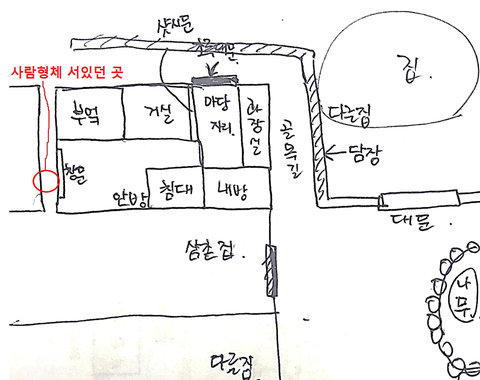 샷시문
초록대문
사람형체 서있던 곳
집.
부엌
거실
마당
자리.
화장실
다른집
골목길
담장
창문
안방
침대
내방
대문
삼촌집.
나무.
다른집.